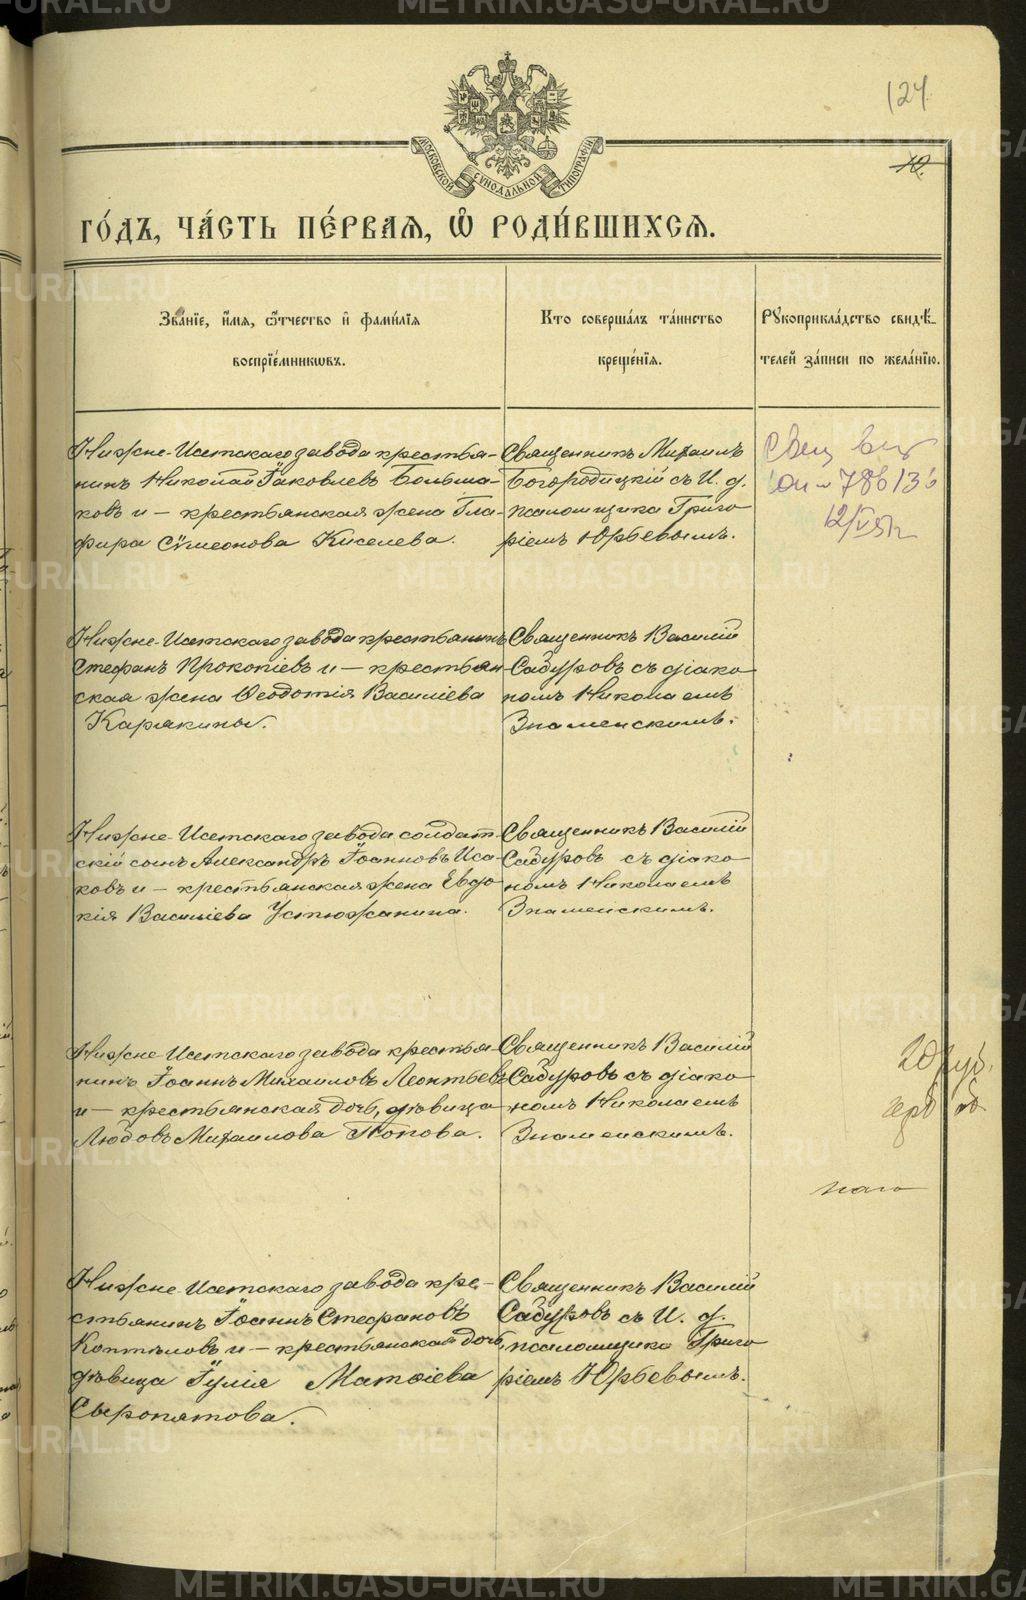 124
10.
МОСКОВСКОЙ СѴНОДАЛЬНОЙ ТИПОГРАФІИ
ГО́ДЪ, ЧА́СТЬ ПЕ́РВАЯ, Ѽ РОДИ́ВШИХСЯ.
Зва́нїе, и҆́мя, ѻ҆́тчество и҆ фами́лїя
воспрїе́мникѡвъ.
Кто соверша́лъ та́инство
креще́нїя.
Рꙋкоприкла́дство свидѣ́-
телей за́писи по жела́нїю.
Нижне-Исетскаго завода крестья-
нинъ Николай Іаковлевъ Больша-
ковъ и – крестьянская жена Гла-
фира Сѵмеонова Киселева.
Священникъ Михаилъ
Богородицкій съ И. д.
псаломщика Григо
ріемъ Юрьевымъ.
12/VI 51г
Нижне-Исетскаго завода крестьянинъ
Стефанъ Прокопіевъ и – крестьян
ская жена Ѳеодотія Василіева
Карякины.
Священникъ Василій
Садуровъ съ діако
номъ Николаемъ
Знаменскимъ.
Нижне-Исетскаго завода солдат-
скій сынъ Александръ Іоанновъ Иса-
ковъ и – крестьянская жена Евдо
кія Василіева Устюжанина.
Священникъ Василій
Садуровъ съ діако
номъ Николаемъ
Знаменскимъ.
Нижне-Исетскаго завода крестья-
нинъ Іоаннъ Михаиловъ Леонтьевъ
и – крестьянская дочь, дѣвица
Любовь Михаилова Попова.
Священникъ Василій
Садуровъ съ діако
номъ Николаемъ
Знаменскимъ.
Нижне-Исетскаго завода кре-
стьянинъ Іоаннъ Стефановъ
Коптяловъ и – крестьянская дочь,
дѣвица Іулія Матѳіева
Сыропятова.
Священникъ Василій
Садуровъ съ И. д.
псаломщика Григо
ріемъ Юрьевымъ.
METRIKI.GASO-URAL.RU